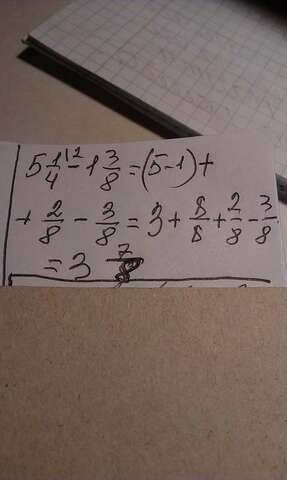 5 1/4 |2 - 1 3/8 = (5-1) +
+ 2/8 - 3/8 = 3 + 8/8 + 2/8 - 3/8
= 3 7/8